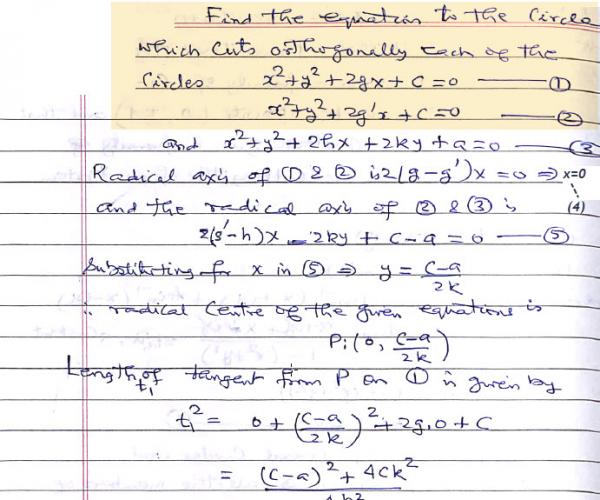 Find the equation to the Circle
which cuts orthogonally each of the
Circles x²+y²+2gx+c=0 —— ①
x²+y²+2g'x+c=0 —— ②
and x²+y²+2hx+2ky+a=0 —— ③
Radical axis of ① & ② is 2(g-g')x=0 ⇒ x=0
and the radical axis of ② & ③ is (4)
2(g'-h)x-2ky+c-a=0 —— ⑤
Substituting for x in ⑤ ⇒ y = (c-a)/2k
∴ radical centre of the given equations is
P: (0, (c-a)/2k)
Length of tangent from P on ① is given by
t₁
t₁² = 0+((c-a)/2k)²+2g.0+c
= ((c-a)²+4ck²)/4k²